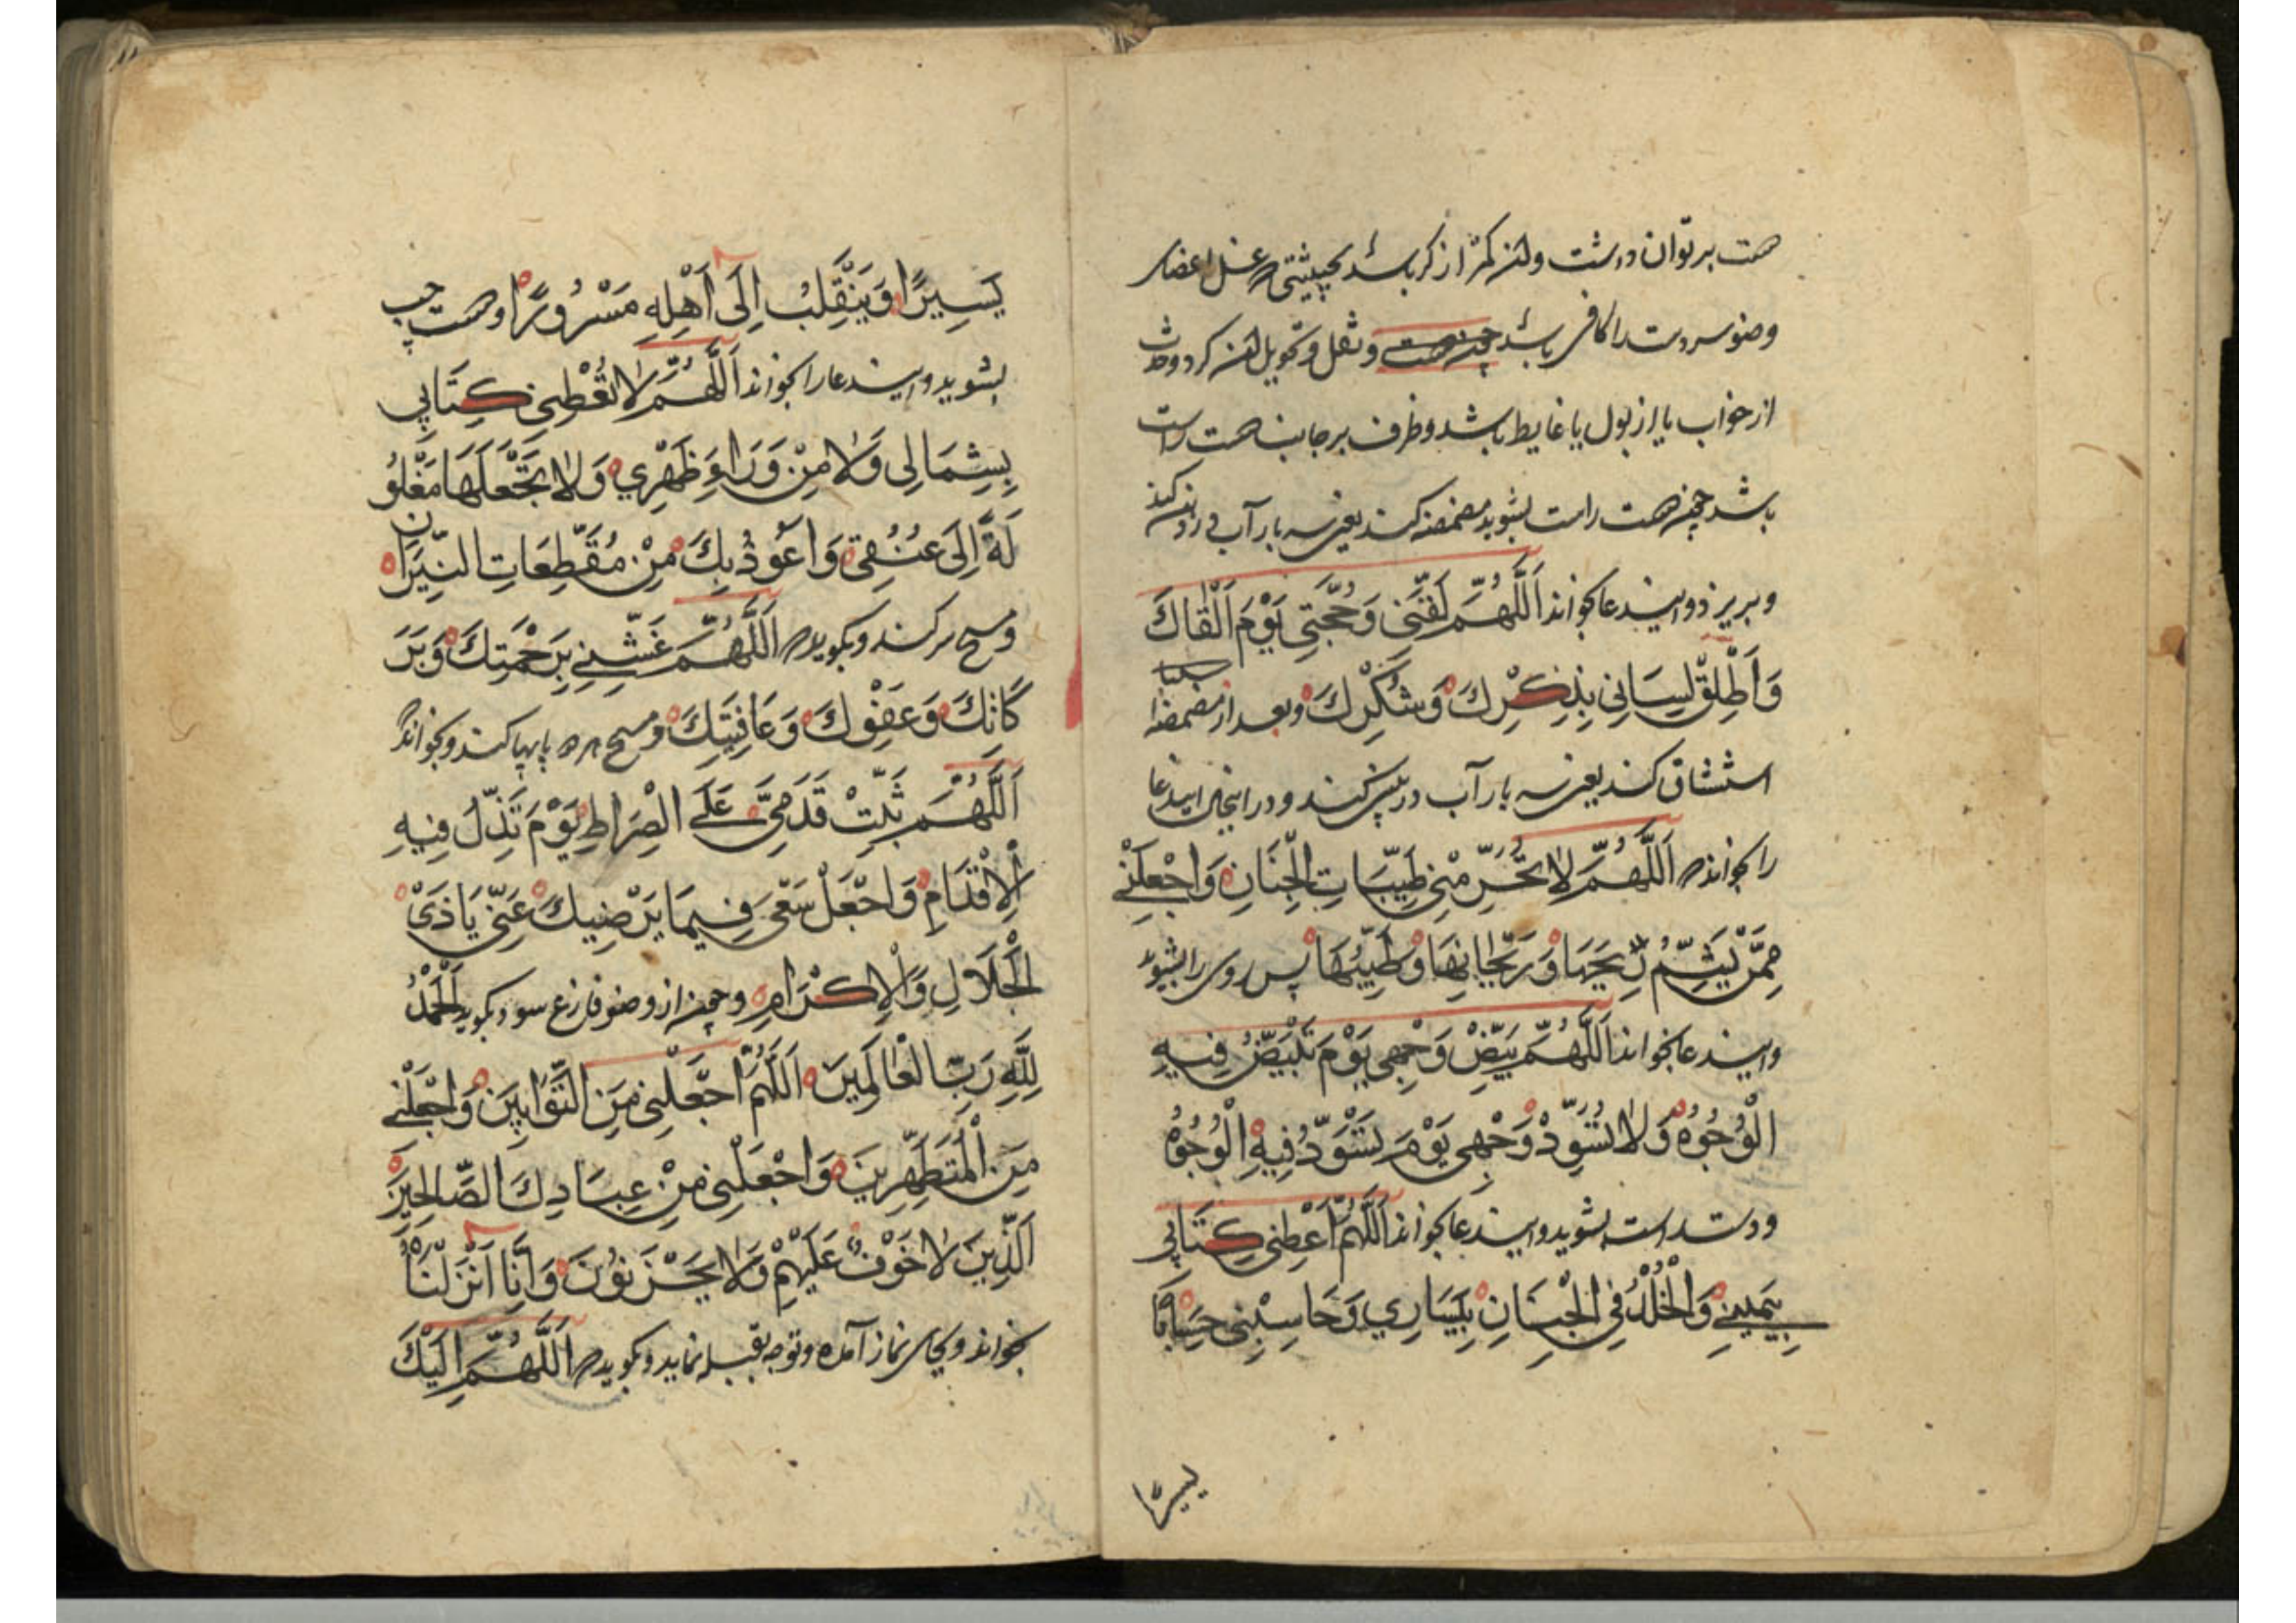 دست بر توان داشت و لکن کمتر از کر باشد بحیثیتی که غسل اعضای
وضو سردست را کافی باشد و نقل و تحویل لکن کرد و حدث
از خواب یا از بول یا غایط باشد و ظرف بر جانب دست راست
باشد چون دست راست بشوید مضمضه کند یعنی سه بار آب در دهن کند
و بریزد و ایندعا بخواند اَللّٰهُمَّ لَقِّنِّی وَحُجَّتِی یَوْمَ اَلْقَاكَ
وَاَطْلِقْ لِسَانِی بِذِكْرِكَ وَشُكْرِكَ و بعد از مضمضه
استنشاق کند یعنی سه بار آب در بینی کند و در اینحال ایندعا
را بخواند اَللّٰهُمَّ لَا تُحَرِّمْنِی طَیِّبَاتِ الْجِنَانِ وَاجْعَلْنِی
مِمَّنْ یَشُمُّ رِیحَهَا وَرَیْحَانَهَا وَطِیبَهَا پس روی را بشوید
و ایندعا بخواند اَللّٰهُمَّ بَیِّضْ وَجْهِی یَوْمَ تَبْیَضُّ فِیهِ
الْوُجُوهُ وَلَا تُسَوِّدْ وَجْهِی یَوْمَ تَسْوَدُّ فِیهِ الْوُجُوهُ
و دست راست بشوید و ایندعا بخواند اَللّٰهُمَّ اَعْطِنِی كِتَابِی
بِیَمِینِی وَالْخُلْدَ فِی الْجِنَانِ بِیَسَارِی وَحَاسِبْنِی حِسَابًا
یسیرًا
یَسِیرًا وَیَنْقَلِبُ اِلَی اَهْلِهِ مَسْرُورًا و دست چپ
بشوید و ایندعا را بخواند اَللّٰهُمَّ لَا تُعْطِنِی كِتَابِی
بِشِمَالِی وَلَا مِنْ وَرَاءِ ظَهْرِی وَلَا تَجْعَلْهَا مَغْلُو
لَةً اِلَی عُنُقِی وَاَعُوذُ بِكَ مِنْ مُقَطِّعَاتِ النِّیرَانِ
و مسح سر کند و بگوید اَللّٰهُمَّ غَشِّنِی بِرَحْمَتِكَ وَبَرَ
كَاتِكَ وَعَفْوِكَ وَعَافِیَتِكَ و مسح هر دو پا بپا کند و بخواند
اَللّٰهُمَّ ثَبِّتْ قَدَمَیَّ عَلَی الصِّرَاطِ یَوْمَ تَذِلُّ فِیهِ
الْاَقْدَامُ وَاجْعَلْ سَعْیِی فِیمَا یَرْضِیكَ عَنِّی یَا ذَی
الْجَلَالِ وَالْاِكْرَامِ و چون از وضو فارغ شود بگوید اَلْحَمْدُ
لِلّٰهِ رَبِّ الْعَالَمِینَ اَللّٰهُمَّ اجْعَلْنِی مِنَ التَّوَّابِینَ وَاجْعَلْنِی
مِنَ الْمُتَطَهِّرِینَ وَاجْعَلْنِی مِنْ عِبَادِكَ الصَّالِحِینَ
اَلَّذِینَ لَا خَوْفٌ عَلَیْهِمْ وَلَا یَحْزَنُونَ وَاِنَّا اَنْزَلْنَاهُ
بخواند و بجای نماز آمده و توجه بقبله نماید و بگوید اَللّٰهُمَّ اِلَیْكَ